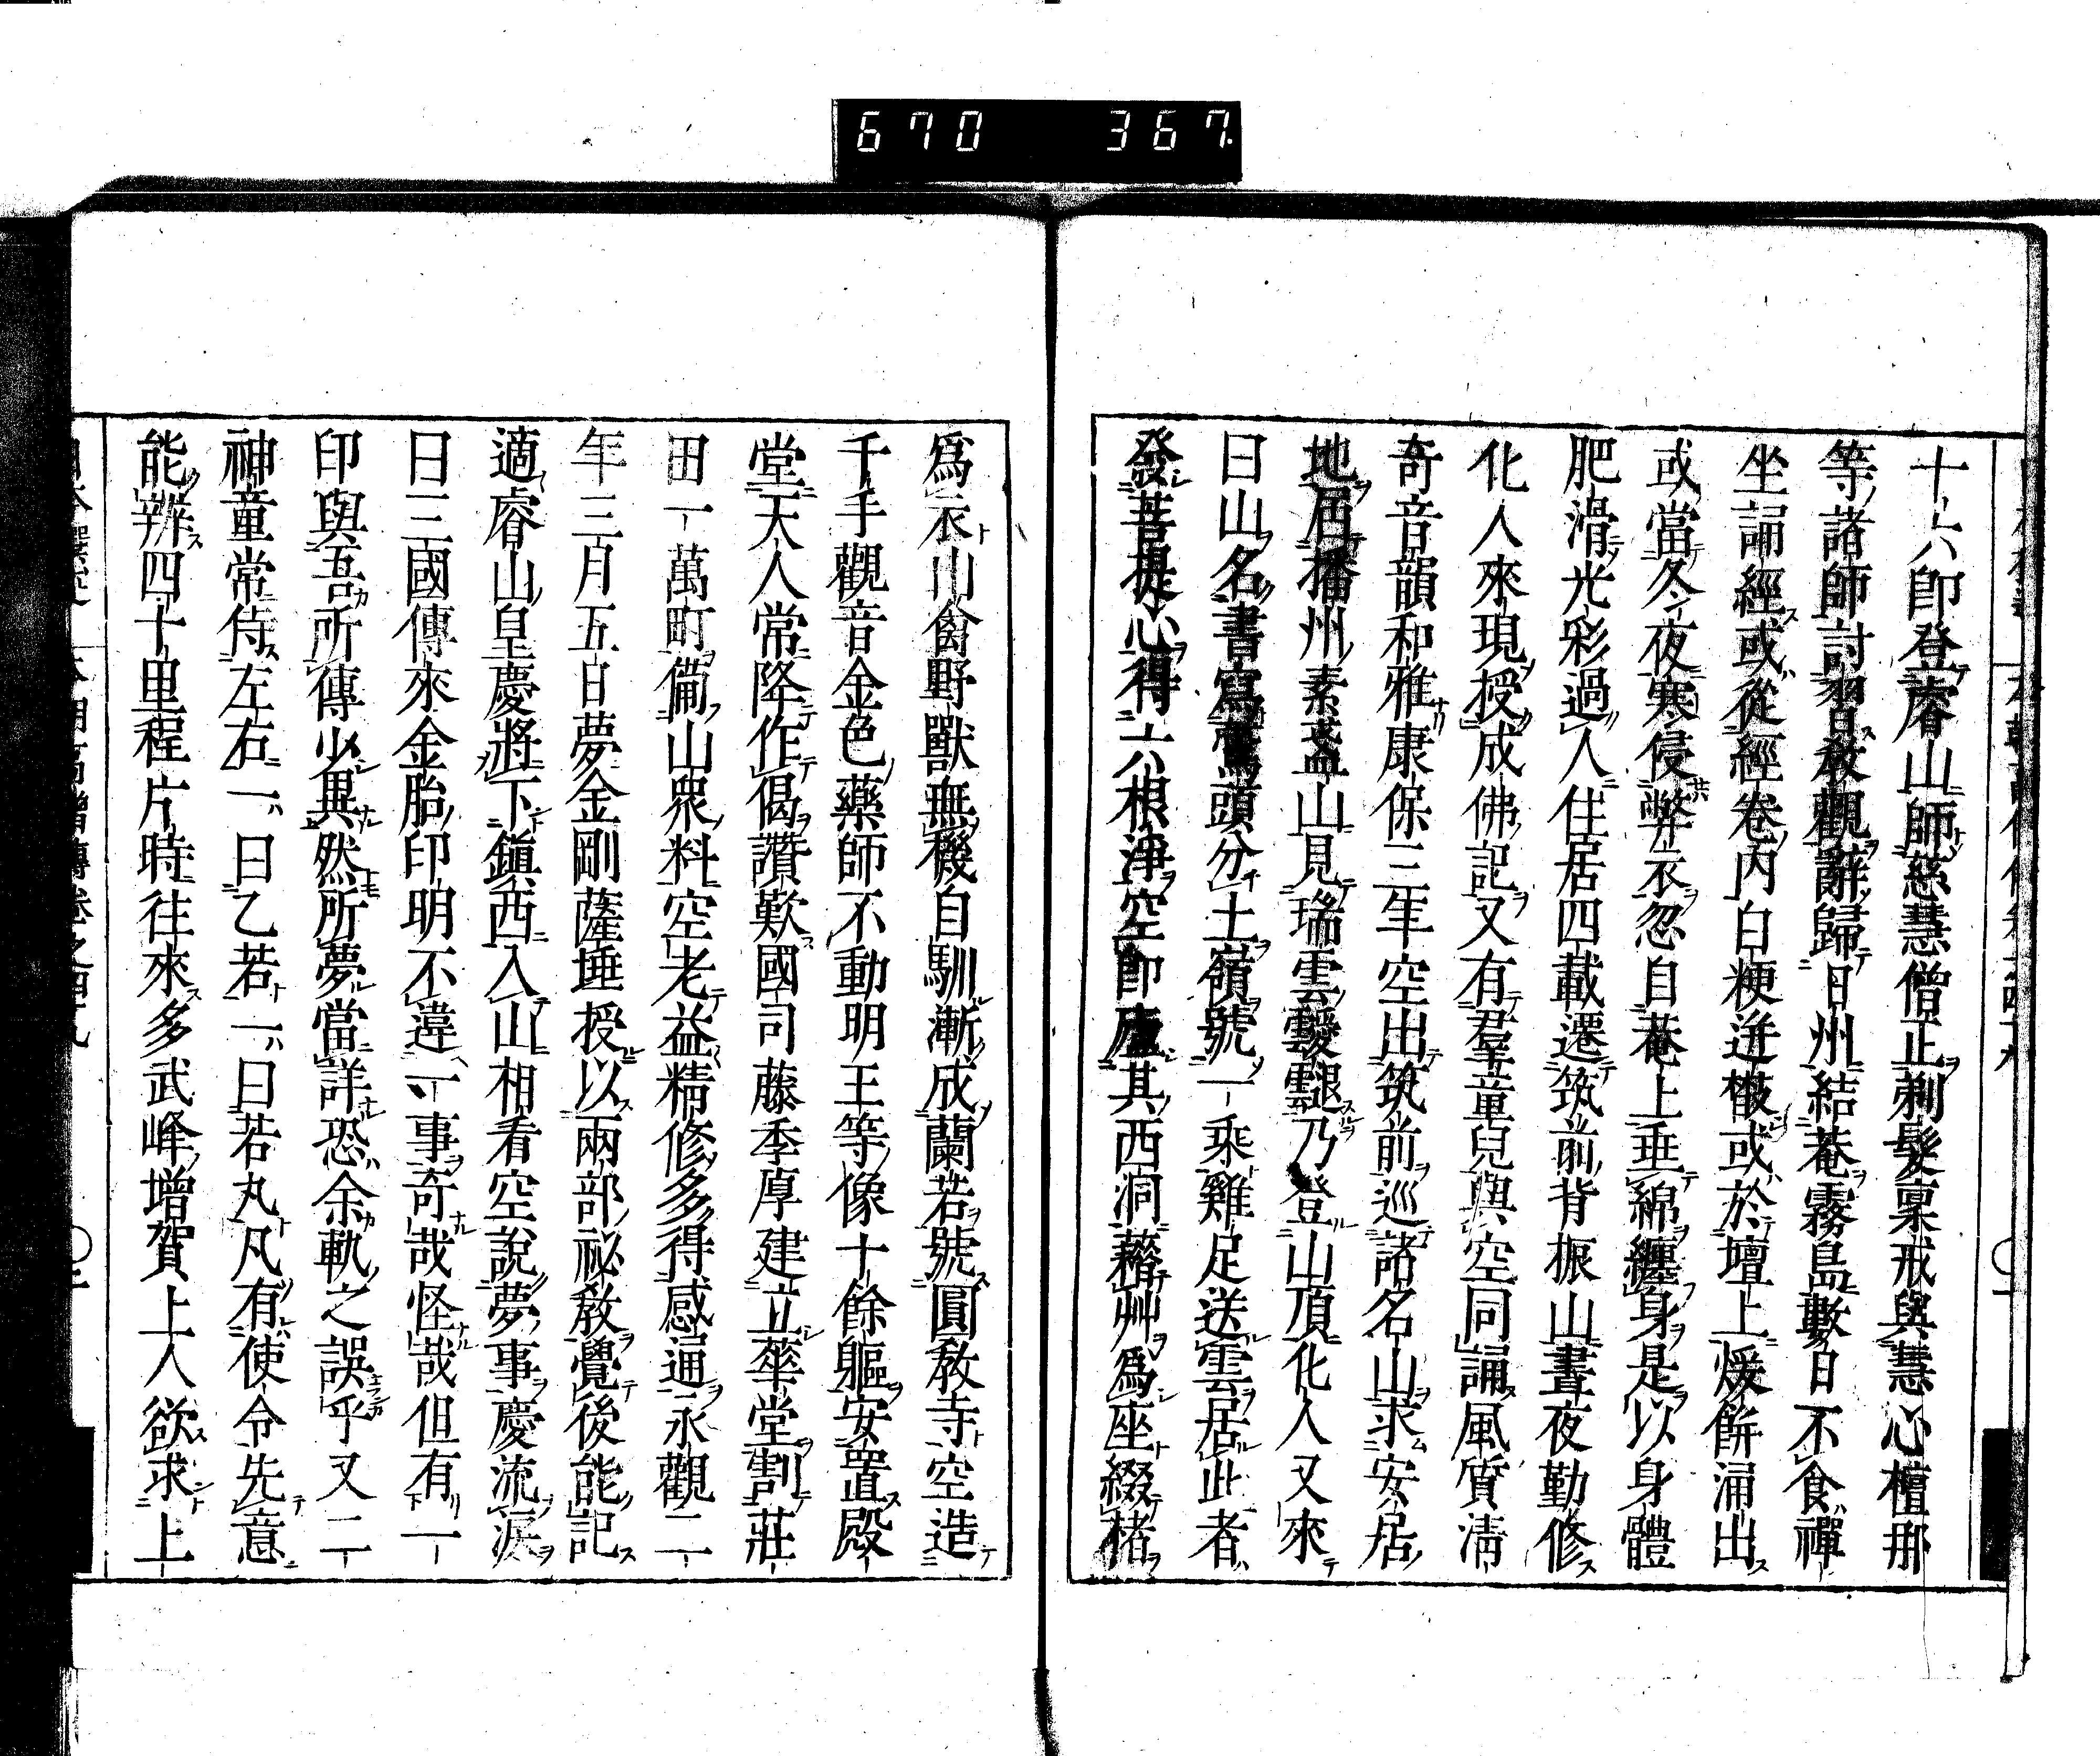 670 367
十六即登睿山師慈慧僧正剃髮稟戒與慧心檀那
等諸師討習教觀辭歸日州結菴霧島數日不食禪
坐誦經或從經卷內白粳迸散或於壇上煖餅涌出
或當冬夜寒侵弊衣忽自菴上垂綿纏身是以身體
肥滑光彩過人住居四載遷筑前背振山晝夜勤修
化人來現授成佛記又有羣童兒與空同誦風質淸
奇音韻和雅康保三年空出筑前巡諸名山求安居
地屆播州素盞山見瑞雲靉靆乃登山頂化人又來
曰山名書寫鷲頭分土嶺號一乘雞足送雲居此者
發菩提心得六根淨空即廬其西洞藉艸爲座綴楮
爲衣山禽野獸無機自馴漸成蘭若號圓敎寺空造
千手觀音金色藥師不動明王等像十餘軀安置殿
堂天人常降作偈讚歎國司藤季厚建立華堂割莊
田一萬町備山衆料空老益精修多得感通永觀二
年三月五日夢金剛薩埵授以兩部祕敎覺後能記
適睿山皇慶將下鎭西入山相看空說夢事慶流淚
曰三國傳來金胎印明不違一事奇哉怪哉但有一
印與吾所傳少異然所夢當詳恐余軌之誤乎又二
神童常侍左右一曰乙若一曰若丸凡有使令先意
能辨四十里程片時往來多武峰增賀上人欲求上